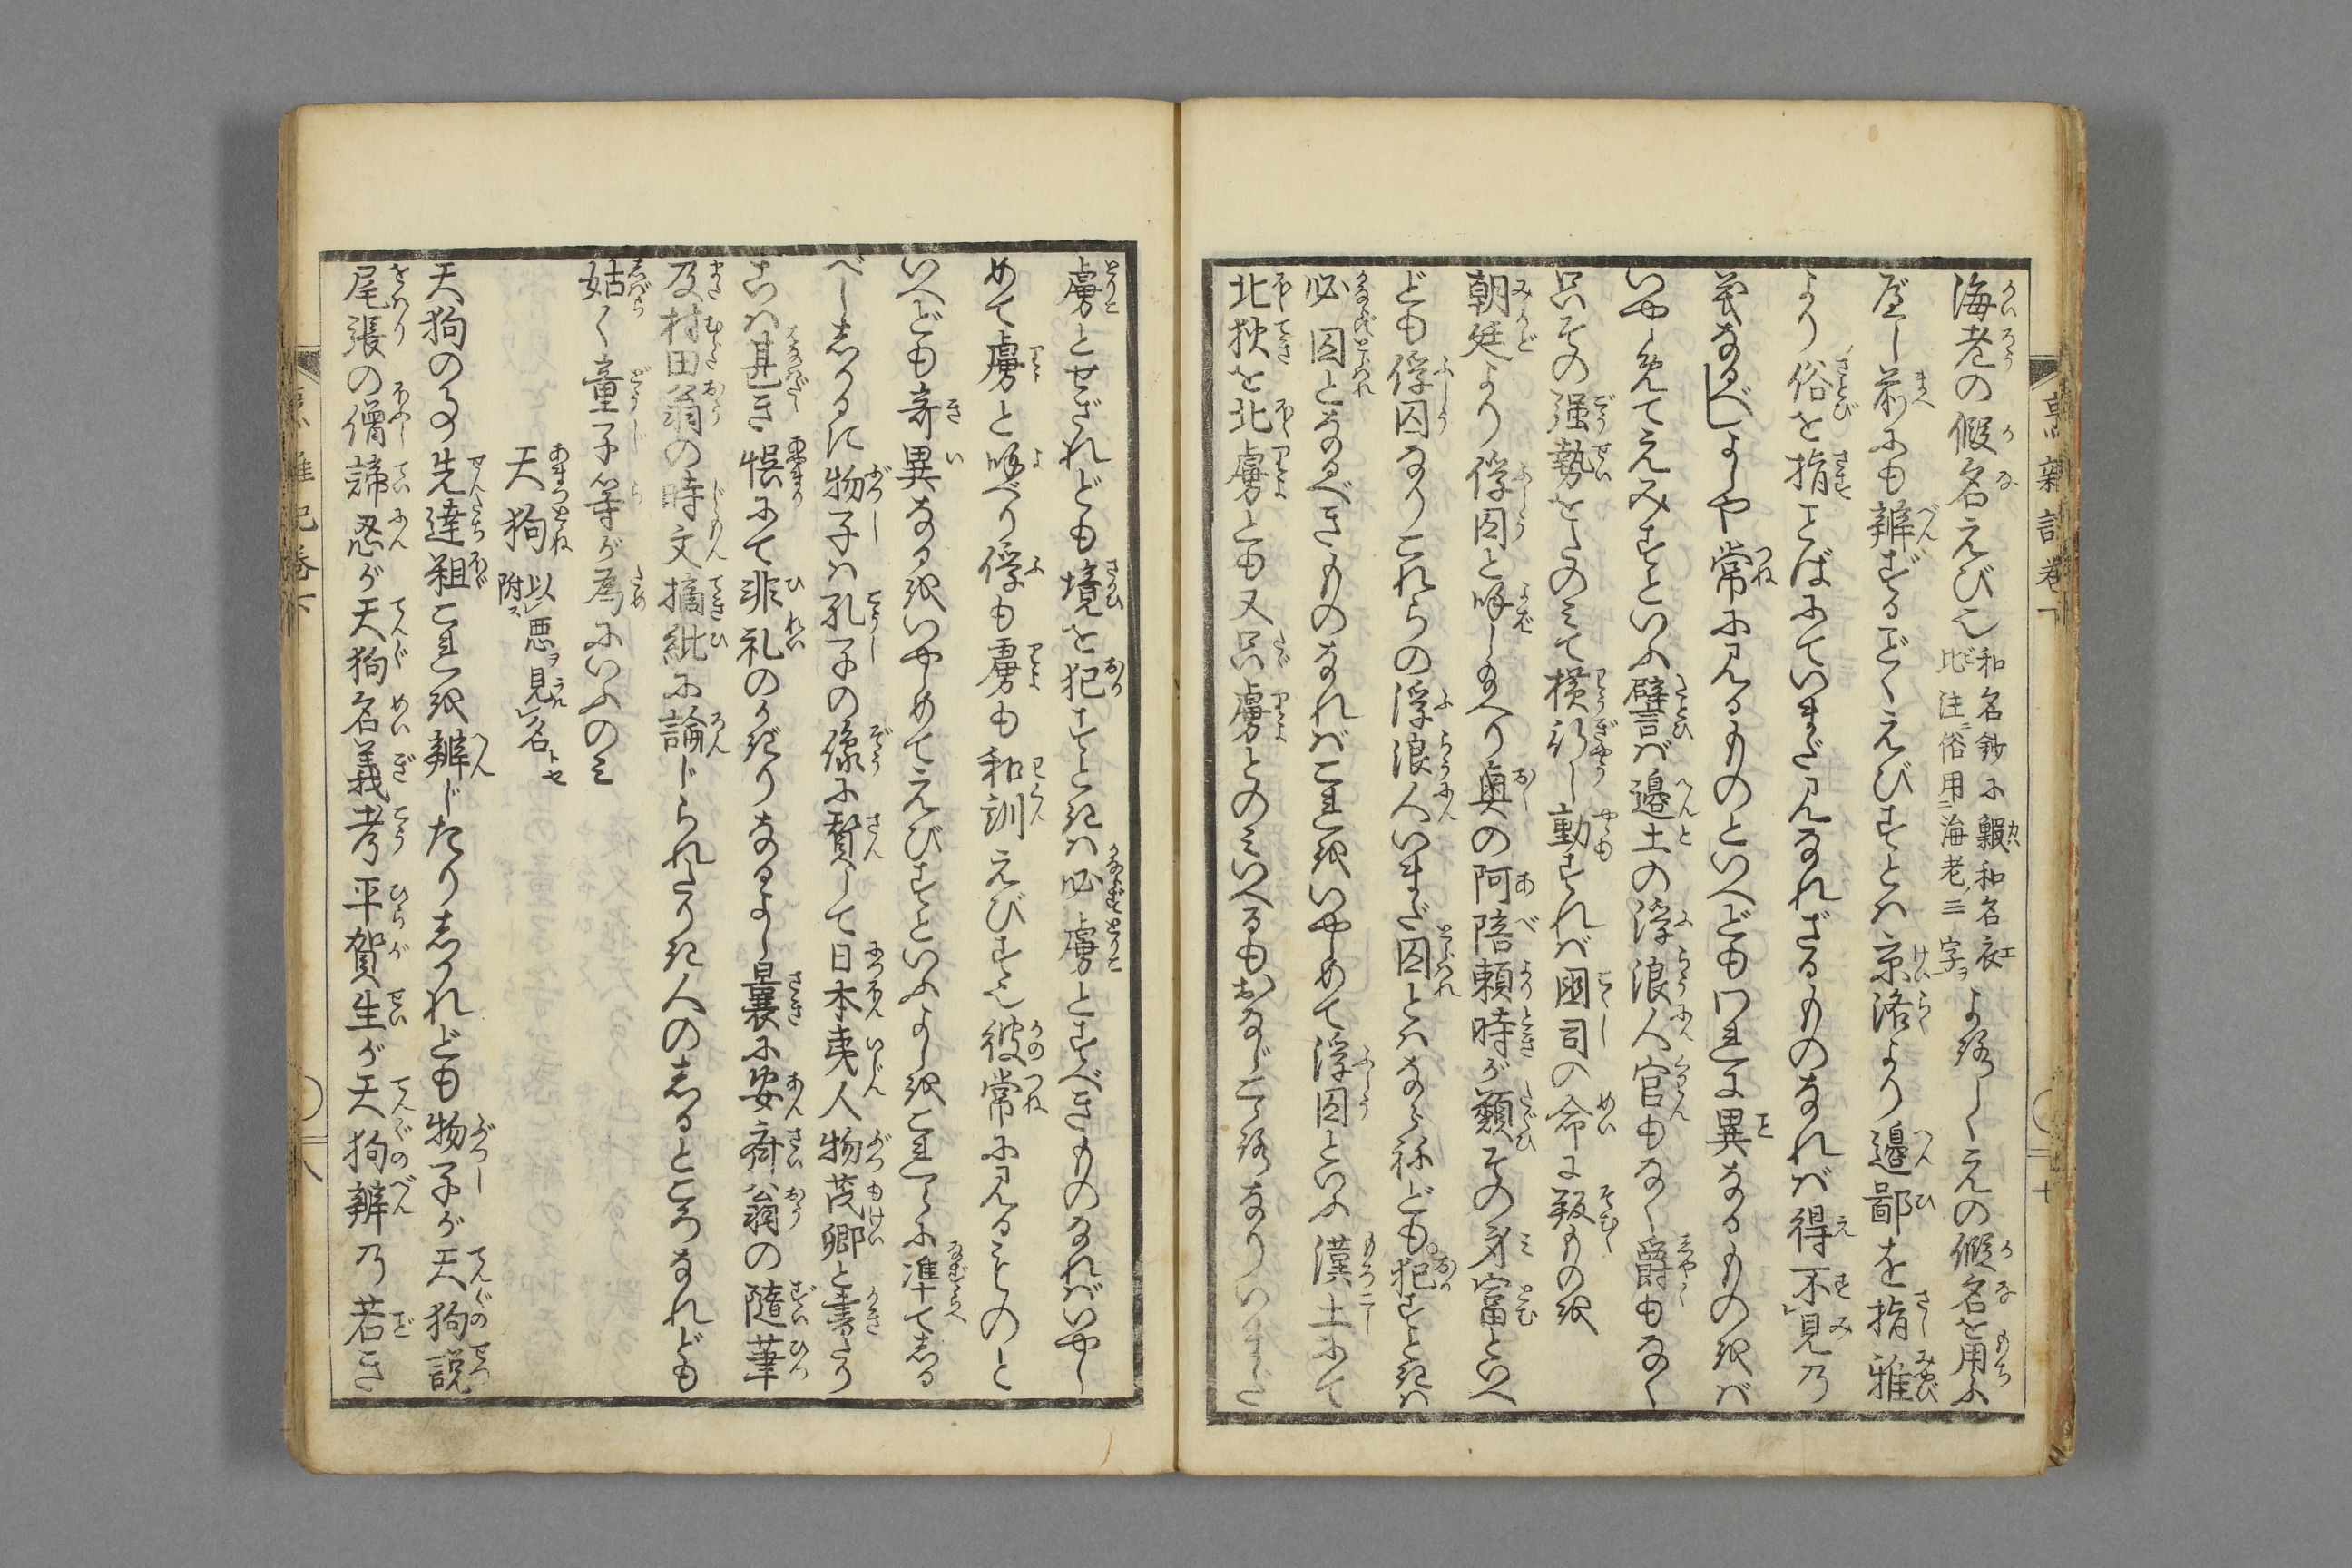 海老の假名えび也 和名鈔に鰕和名衣比注ニ俗用ニ海老ノ二字ヲ よろしくえの假名を用ふ
べし前にも辨ずるごとくえびすとは京洛より邊鄙を指雅
より俗を指ことばにていまだ見なれざるものなれば得不見の
義なるべしよしや常に見るものといへどもわれに異なるものをば
いやしめてえみすといふ譬ば邊土の浮浪人官もなく爵もなく
只その强勢をたのみて横行し動すれば國司の命に叛ものを
朝廷より俘囚と呼しなへり奥の阿陪頼時が類その身富といへ
ども俘囚なりこれらの浮浪人いまだ囚とはならねども犯すときは
必囚となるべきものなればこれをいやしめて浮囚といふ漢土にて
北狄を北虜とも又只虜とのみいへるもおなじこころなりいまだ
虜とせざれども境を犯すときは必虜とすべきものなればいやし
めて虜と呼べり俘も虜も和訓えびす也彼常に見るところのと
いへども奇異なるをいやしめてえびすといふよしをこれらに准て志る
べし志かるに物子は孔子の像に賛して日本夷人物茂卿と書たり
こは甚き悞にて非礼のかぎりなるよし曩に安斎翁の隨筆
及村田翁の時文摘紕に論じられたりき人の志るところなれども
姑く童子等が為にいふのみ
天狗 以悪ヲ見名ト世附ス
天狗の事先達粗これを辨じたり志かれども物子が天狗説
尾張の僧諦忍が天狗名義考平賀生が天狗辨乃若き